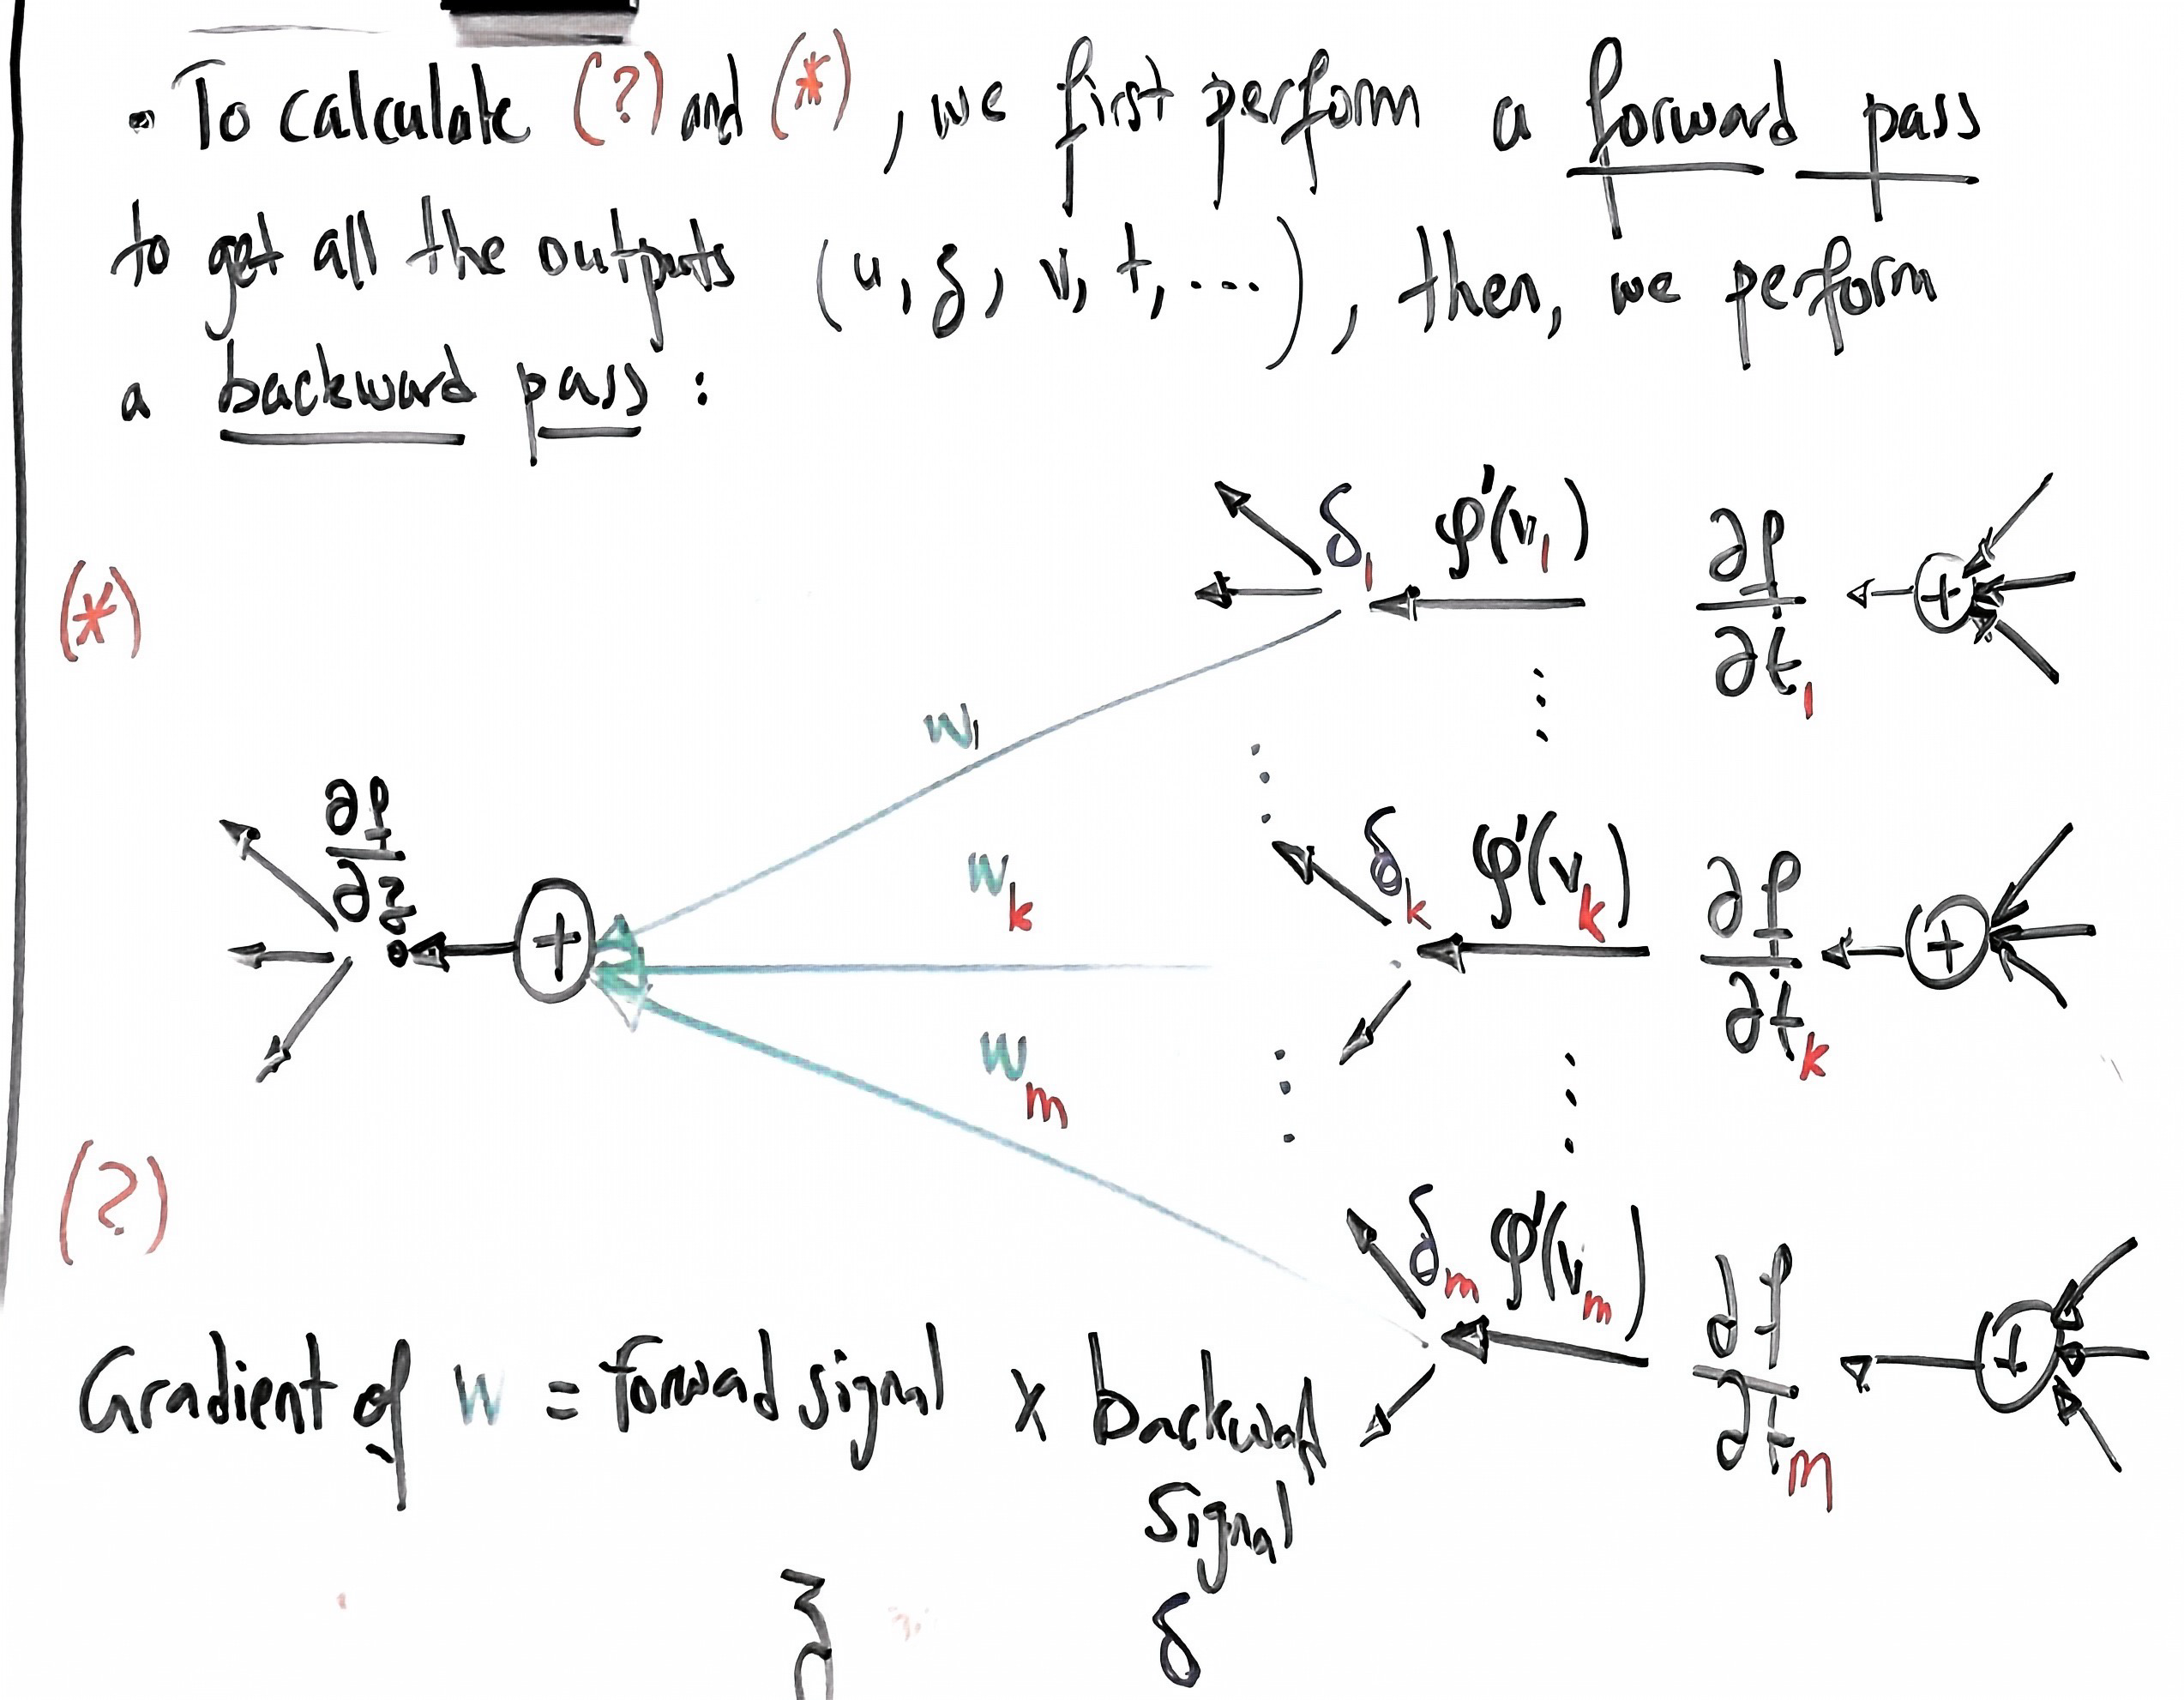 - To calculate (?) and (*), we first perform a forward pass
to get all the outputs (u, z, v, t, ...), then, we perform
a backward pass :
δ1 φ'(v1) ∂f/∂t1 +
(*)
w1
∂f/∂z + wk δk φ'(vk) ∂f/∂tk +
wm
(?)
δm φ'(vm) ∂f/∂tm +
Gradient of w = forward signal x backward
signal
z δ